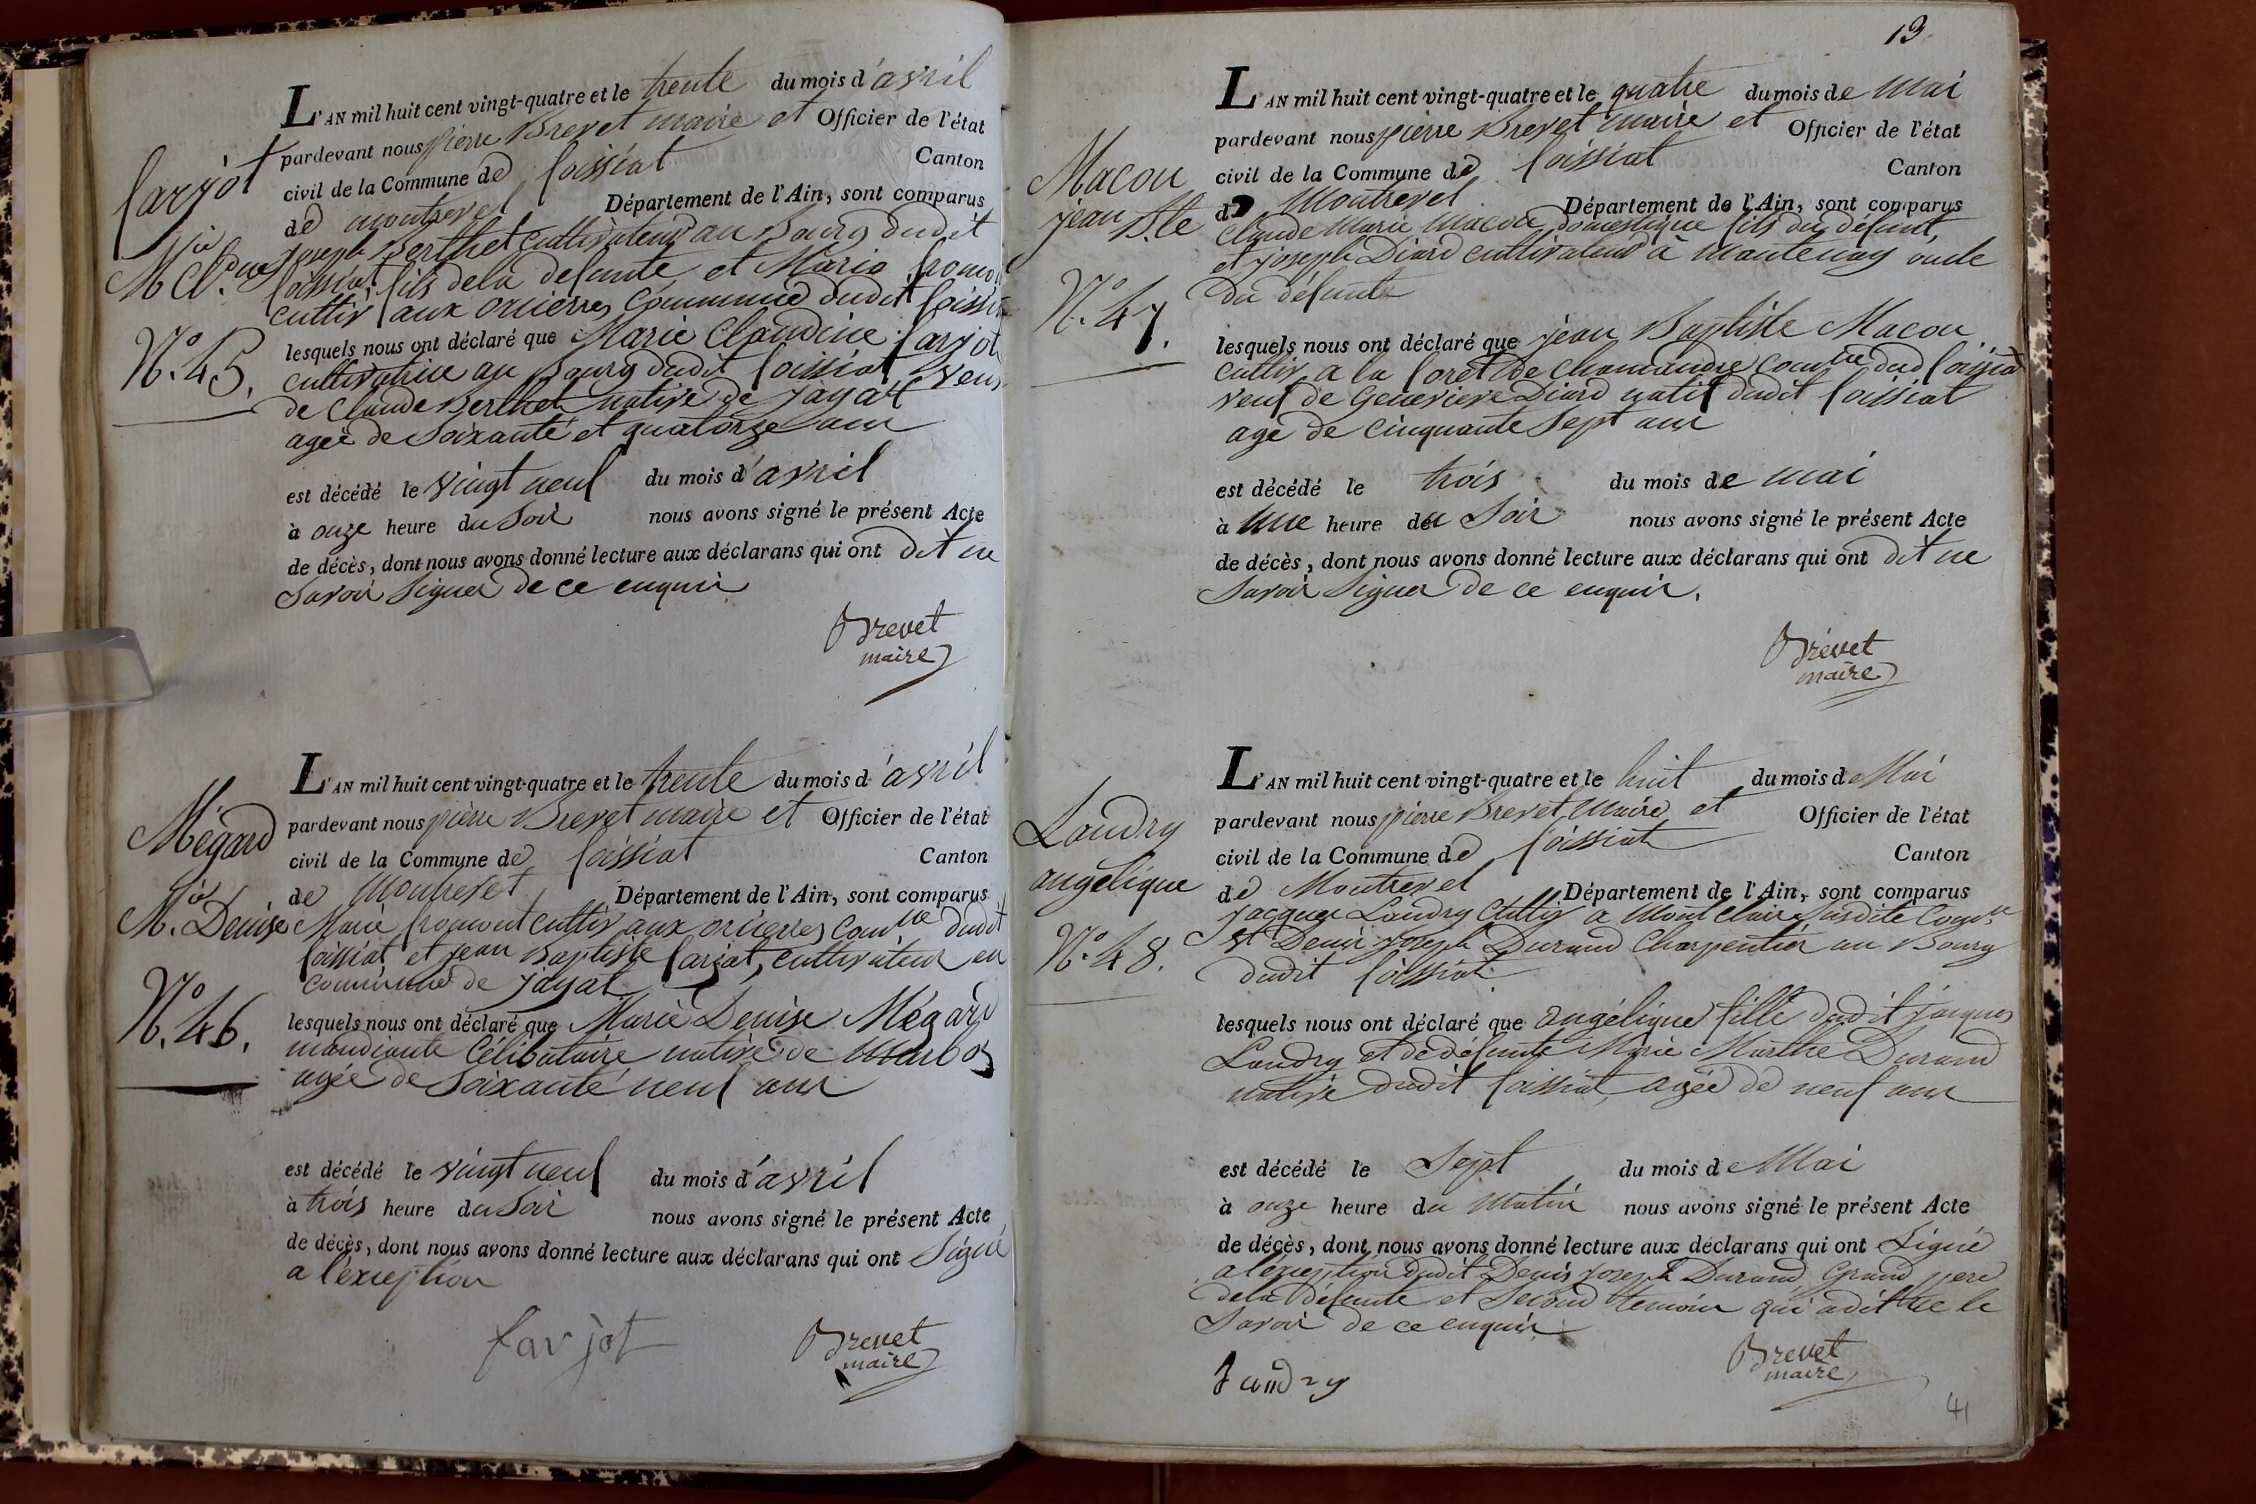 farjot
Mie Cl.dine
N.o 45.
L'AN mil huit cent vingt-quatre et le trente du mois d'avril
pardevant nous pierre Brevet maire et Officier de l'état
civil de la Commune de foissiat Canton
de montrevel Département de l'Ain, sont comparus
joseph Berthet cultivateur au Bourg dudit
foissiat fils de la defunte et Marie fromont
cultiv aux orcieres Commune dudit foissiat
lesquels nous ont déclaré que Marie Claudine farjot
cultivatrice au Bourg dudit foissiat veuve
de Claude Berthet native de jayat
agée de Soixante et quatorze ans
est décédé le vingt neuf du mois d'avril
à onze heure du Soir nous avons signé le présent Acte
de décès, dont nous avons donné lecture aux déclarans qui ont dit ne
Savoir Signer de ce enquis
Brevet
maire
Mégard
Mie Denise
N.o 46.
L'AN mil huit cent vingt-quatre et le trente du mois d'avril
pardevant nous pierre Brevet maire et Officier de l'état
civil de la Commune de foissiat Canton
de Montrevel Département de l'Ain, sont comparus
Marie fromont cultiv aux orcieres Comune dudit
foissiat et jean Baptiste farjat, cultivateur en
Commune de jayat
lesquels nous ont déclaré que Marie Denise Mégard
mandiante Célibataire native de Marboz
agée de Soixante neuf ans
est décédé le vingt neuf du mois d'avril
à trois heure du Soir nous avons signé le présent Acte
de décès, dont nous avons donné lecture aux déclarans qui ont Signé
a l'exception
farjot
Brevet
maire
13
Macon
jean B.te
N.o 47.
L'AN mil huit cent vingt-quatre et le quatre du mois de mai
pardevant nous pierre Brevet maire et Officier de l'état
civil de la Commune de foissiat Canton
de Montrevel Département de l'Ain, sont comparus
Claude Marie Macon domestique fils du défunt
et joseph Diard cultivateur à mantenay oncle
du défunt
lesquels nous ont déclaré que jean Baptiste Macon
cultiv a la foret de Chamandre Comune dud foissiat
veuf de Genevieve Diard natif dudit foissiat
agé de cinquante Sept ans
est décédé le trois du mois de mai
à une heure du Soir nous avons signé le présent Acte
de décès, dont nous avons donné lecture aux déclarans qui ont dit ne
Savoir Signer de ce enquis.
Brevet
maire
Landry
angélique
N.o 48.
L'AN mil huit cent vingt-quatre et le huit du mois de Mai
pardevant nous pierre Brevet Maire et Officier de l'état
civil de la Commune de foissiat Canton
de Montrevel Département de l'Ain, sont comparus
jacques Landry Cultiv a Montclair Susdite Comune
et Denis joseph Durand Charpentier au Bourg
dudit foissiat.
lesquels nous ont déclaré que angélique fille dudit jacques
Landry et de défunte Marie Marthe Durand
native dudit foissiat agée de neuf ans
est décédé le Sept du mois de Mai
à onze heure du Matin nous avons signé le présent Acte
de décès, dont nous avons donné lecture aux déclarans qui ont Signé
a l'exception dudit Denis joseph Durand Grand pere
de la défunte et Second temoin qui a dit ne le
Savoir de ce enquis
Landry
Brevet
maire
41